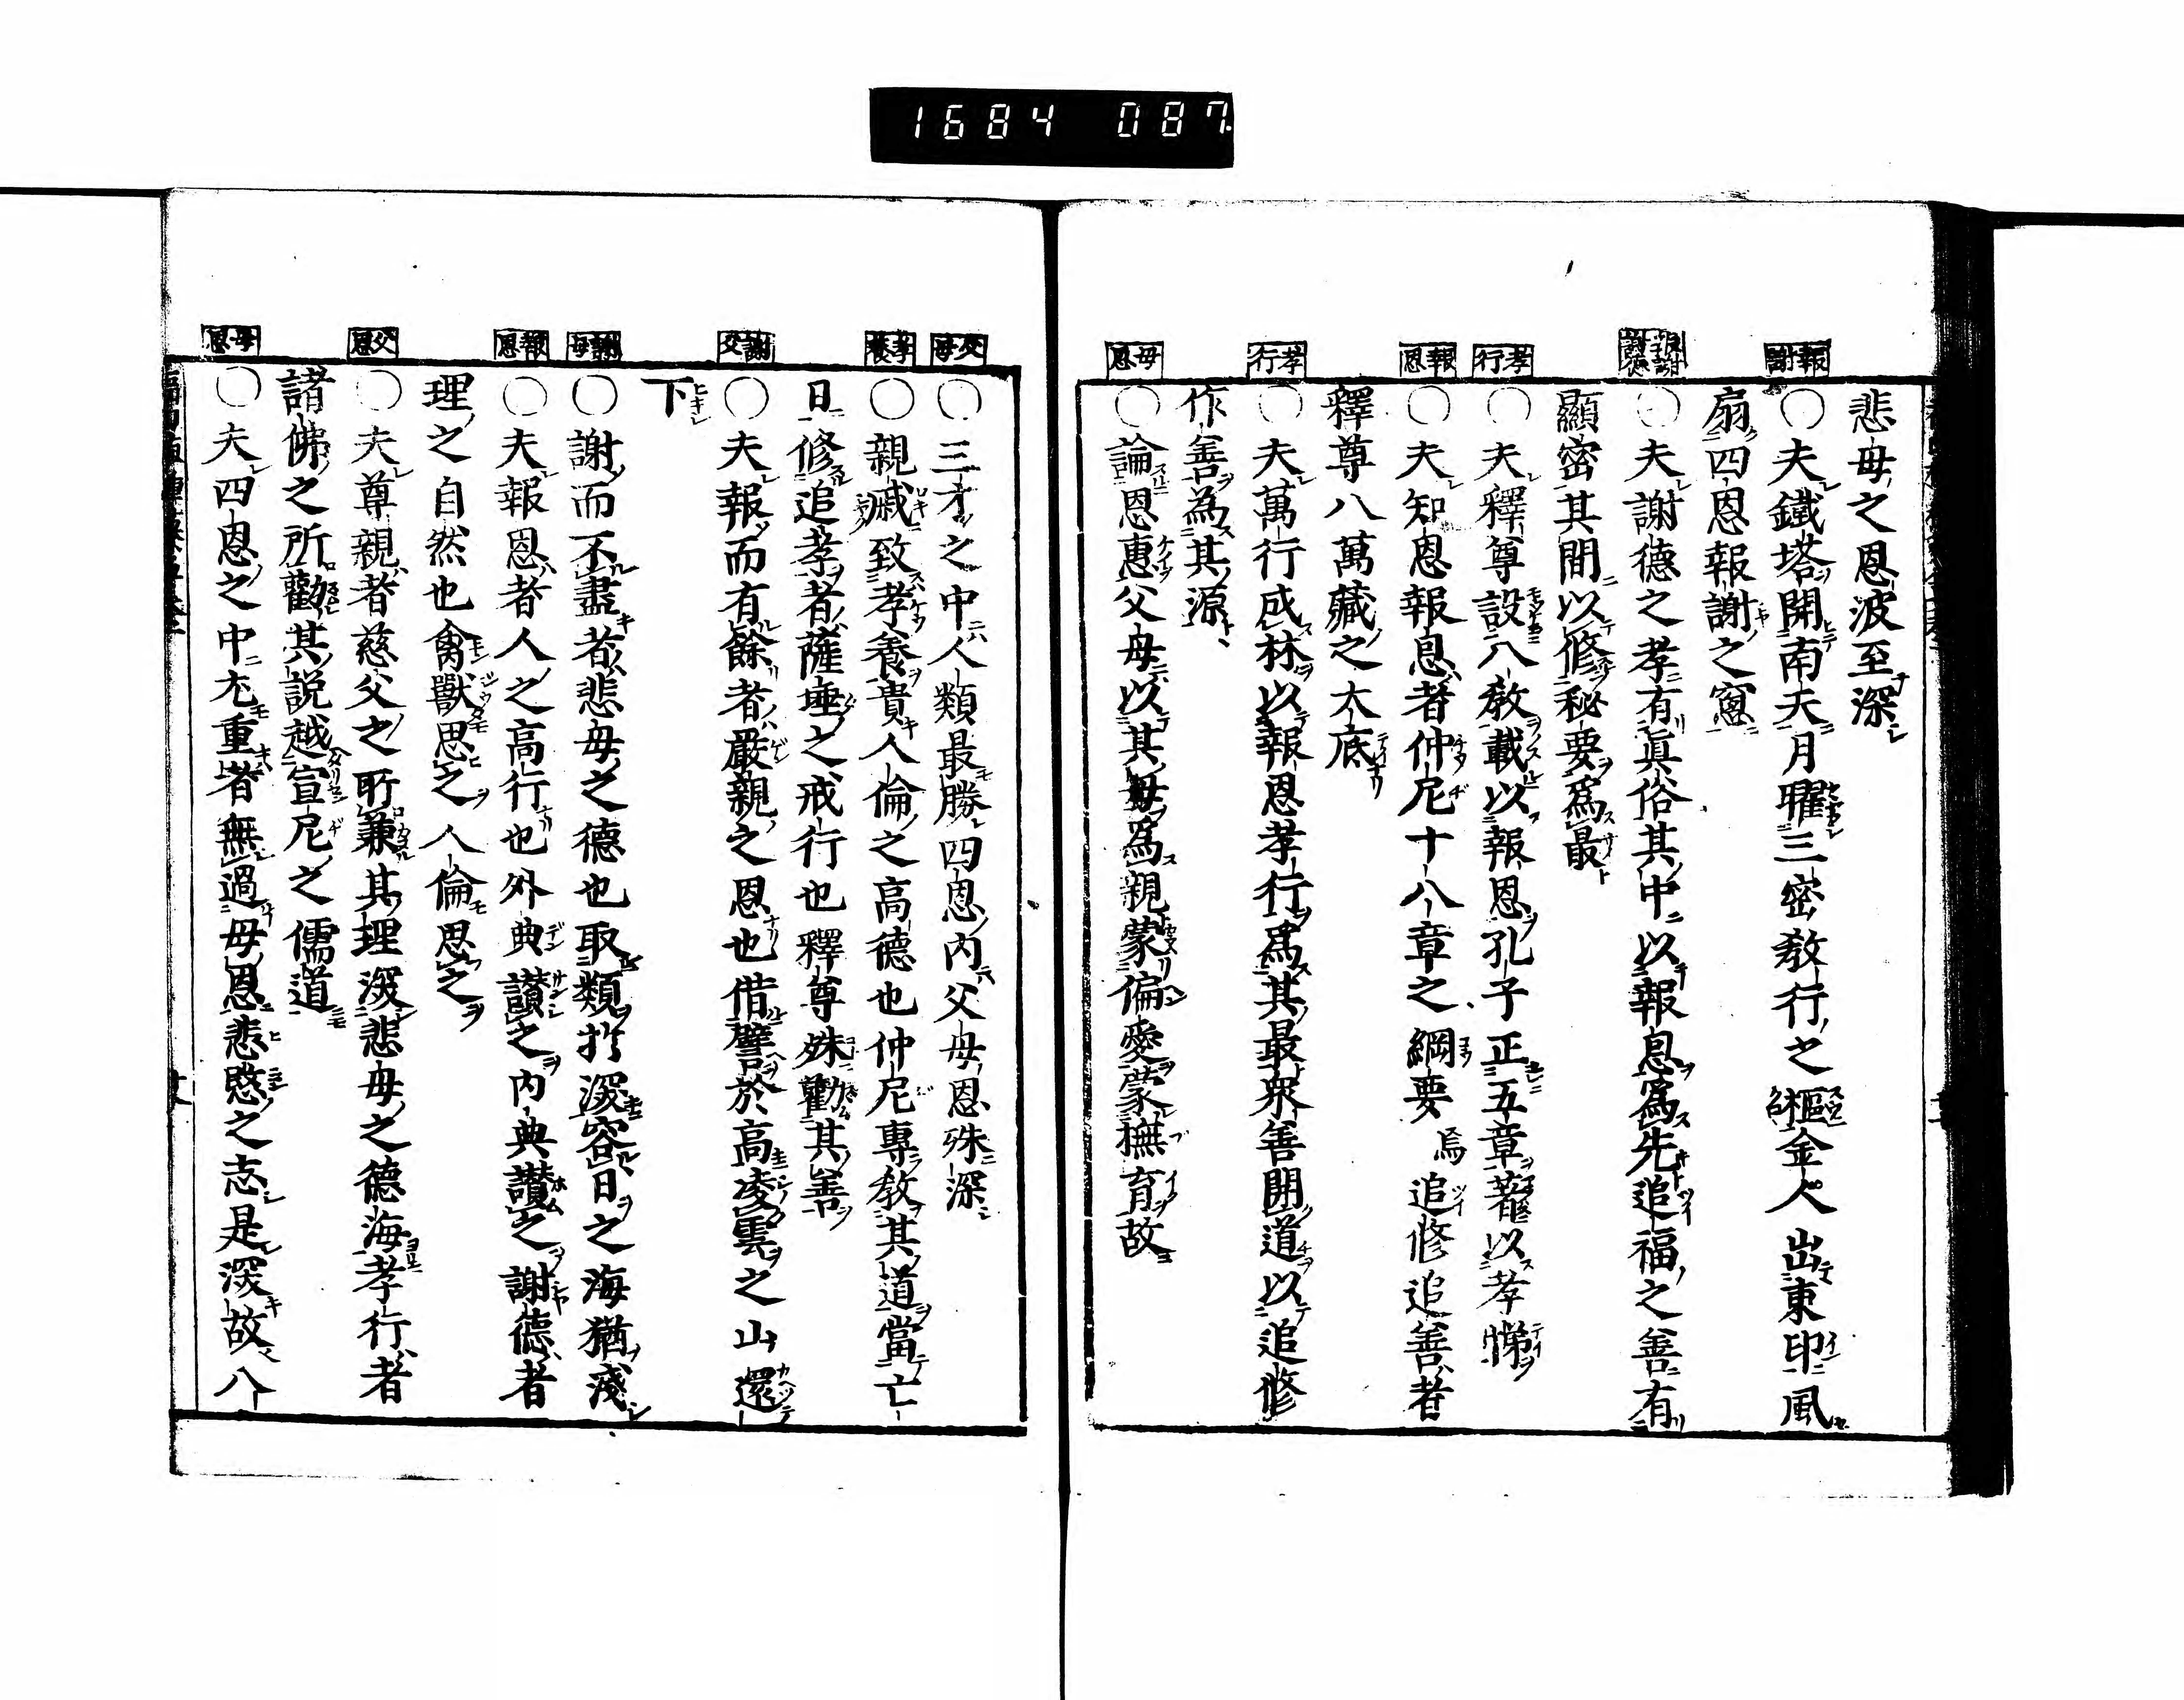 1684 087.
報謝
報謝
孝行
報恩
孝行
母恩
悲母之恩波至深
○夫鐵塔開南天月曜三密教行之樞金人出東印風
扇四恩報謝之窻
○夫謝德之孝有眞俗其中以報恩爲先追福之善有
顯密其間以修秘要爲最
○夫釋尊設八教載以報恩孔子正五章著以孝悌
○夫知恩報恩者仲尼十八章之綱要焉追修追善者
釋尊八萬藏之大底
○夫萬行成林以報恩孝行爲其最衆善開道以追修
作善為其源
○論恩惠父母以其母爲親蒙偏愛蒙撫育故
父母
孝養
謝父
謝母
報恩
父恩
母恩
○三才之中人類最勝四恩内父母恩殊深
○親戚致孝養貴人倫之高德也仲尼專教其道當亡
日修追孝者薩埵之戒行也釋尊殊勸其善
○夫報而有餘者嚴親之恩也借譬於高凌雲之山還
下
○謝而不盡者悲母之德也取類於深容日之海猶淺
○夫報恩者人之高行也外典讃之内典讃之謝德者
理之自然也禽獸思之人倫思之
○夫尊親者慈父之所兼其理深悲母之德海孝行者
諸佛之所勸其説越宣尼之儒道
○夫四恩之中尤重者無過母恩悲愍之志是深故八